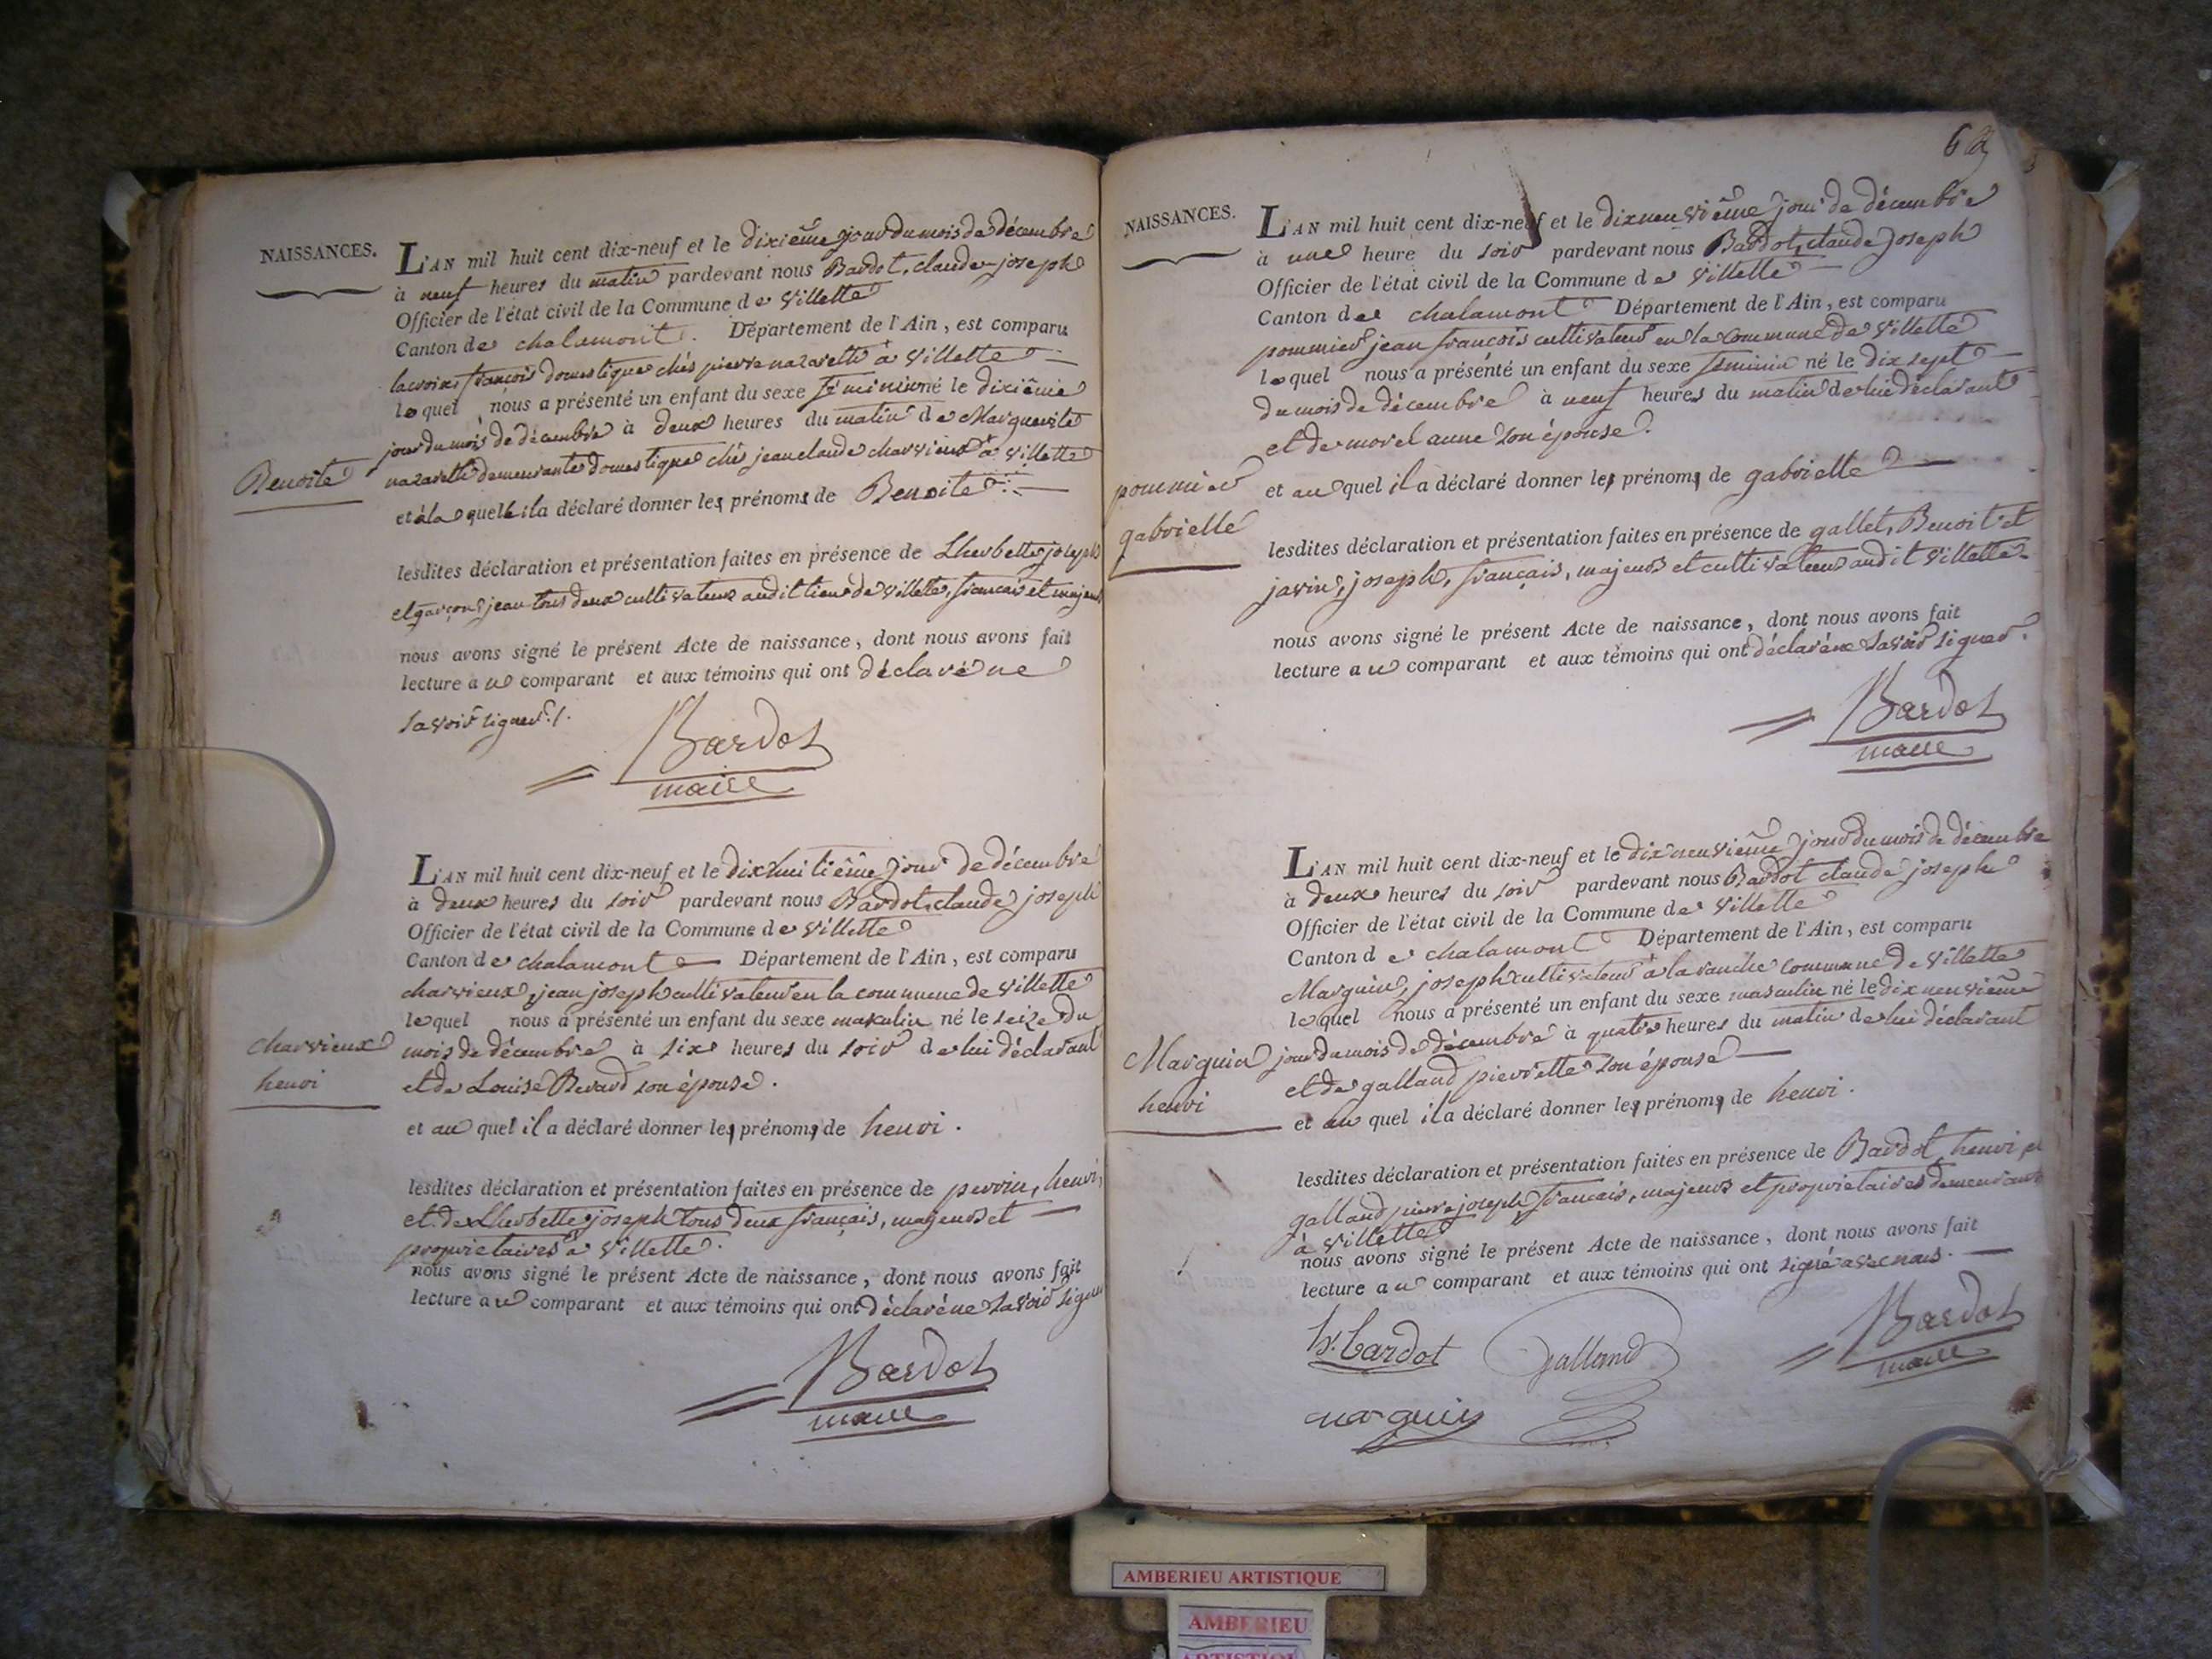 NAISSANCES.
L'AN mil huit cent dix-neuf et le dixième jour du mois de décembre
à neuf heures du matin pardevant nous Bardot, claude joseph
Officier de l'état civil de la Commune de Villette
Canton de chalamont. Département de l'Ain, est comparu
lacroix françois domestique chés pierre nazareth à Villette
lequel nous a présenté un enfant du sexe féminin né le dixième
jour du mois de décembre à deux heures du matin de Marguerite
nazareth demeurante domestique chés jean claude charvieux à Villette
Benoite
et à la quelle il a déclaré donner les prénoms de Benoite
lesdites déclaration et présentation faites en présence de Lherbette joseph
et garçon jean tous deux cultivateurs audit lieu de Villette, français et majeurs
nous avons signé le présent Acte de naissance, dont nous avons fait
lecture au comparant et aux témoins qui ont déclaré ne
savoir signer ./.
Bardot
maire
L'AN mil huit cent dix-neuf et le dix huitième jour de décembre
à deux heures du soir pardevant nous Bardot, claude joseph
Officier de l'état civil de la Commune de Villette
Canton de chalamont Département de l'Ain, est comparu
charvieux, jean joseph cultivateur en la commune de Villette
lequel nous a présenté un enfant du sexe masculin né le seize du
charvieux
henri
mois de décembre à six heures du soir de lui déclarant
et de Louise Revard son épouse.
et au quel il a déclaré donner les prénoms de henri.
lesdites déclaration et présentation faites en présence de perrin, henri,
et de Lherbette joseph tous deux français, majeurs et
proprietaires à Villette.
nous avons signé le présent Acte de naissance, dont nous avons fait
lecture au comparant et aux témoins qui ont déclaré ne savoir signer
Bardot
maire
NAISSANCES.
L'AN mil huit cent dix-neuf et le dix neuvième jour de décembre
à une heure du soir pardevant nous Bardot, claude joseph
Officier de l'état civil de la Commune de Villette
Canton de chalamont Département de l'Ain, est comparu
pommier jean françois cultivateur en la commune de Villette
lequel nous a présenté un enfant du sexe feminin né le dix sept
du mois de décembre à neuf heures du matin de lui déclarant
et de morel anne son épouse.
pommier
gabrielle
et au quel il a déclaré donner les prénoms de gabrielle
lesdites déclaration et présentation faites en présence de gallet, Benoit et
javin, joseph, français, majeurs et cultivateurs audit Villette.
nous avons signé le présent Acte de naissance, dont nous avons fait
lecture au comparant et aux témoins qui ont déclaré ne savoir signer.
Bardot
maire
L'AN mil huit cent dix-neuf et le dix neuvième jour du mois de décembre
à deux heures du soir pardevant nous Bardot claude joseph
Officier de l'état civil de la Commune de Villette
Canton de chalamont Département de l'Ain, est comparu
Marguin, joseph cultivateur à la commune de Villette
lequel nous a présenté un enfant du sexe masculin né le dix neuvième
Marguin
henri
jour du mois de décembre à quatre heures du matin de lui déclarant
et de galland pierrette son épouse
et au quel il a déclaré donner les prénoms de henri.
lesdites déclaration et présentation faites en présence de Bardot, henri et
galland pierre joseph, français, majeurs et proprietaires demeurant
à Villette
nous avons signé le présent Acte de naissance, dont nous avons fait
lecture au comparant et aux témoins qui ont signé avec nous.
h. bardot
galland
Bardot
maire
marguin
AMBERIEU ARTISTIQUE
AMBERIEU
ARTISTIQUE